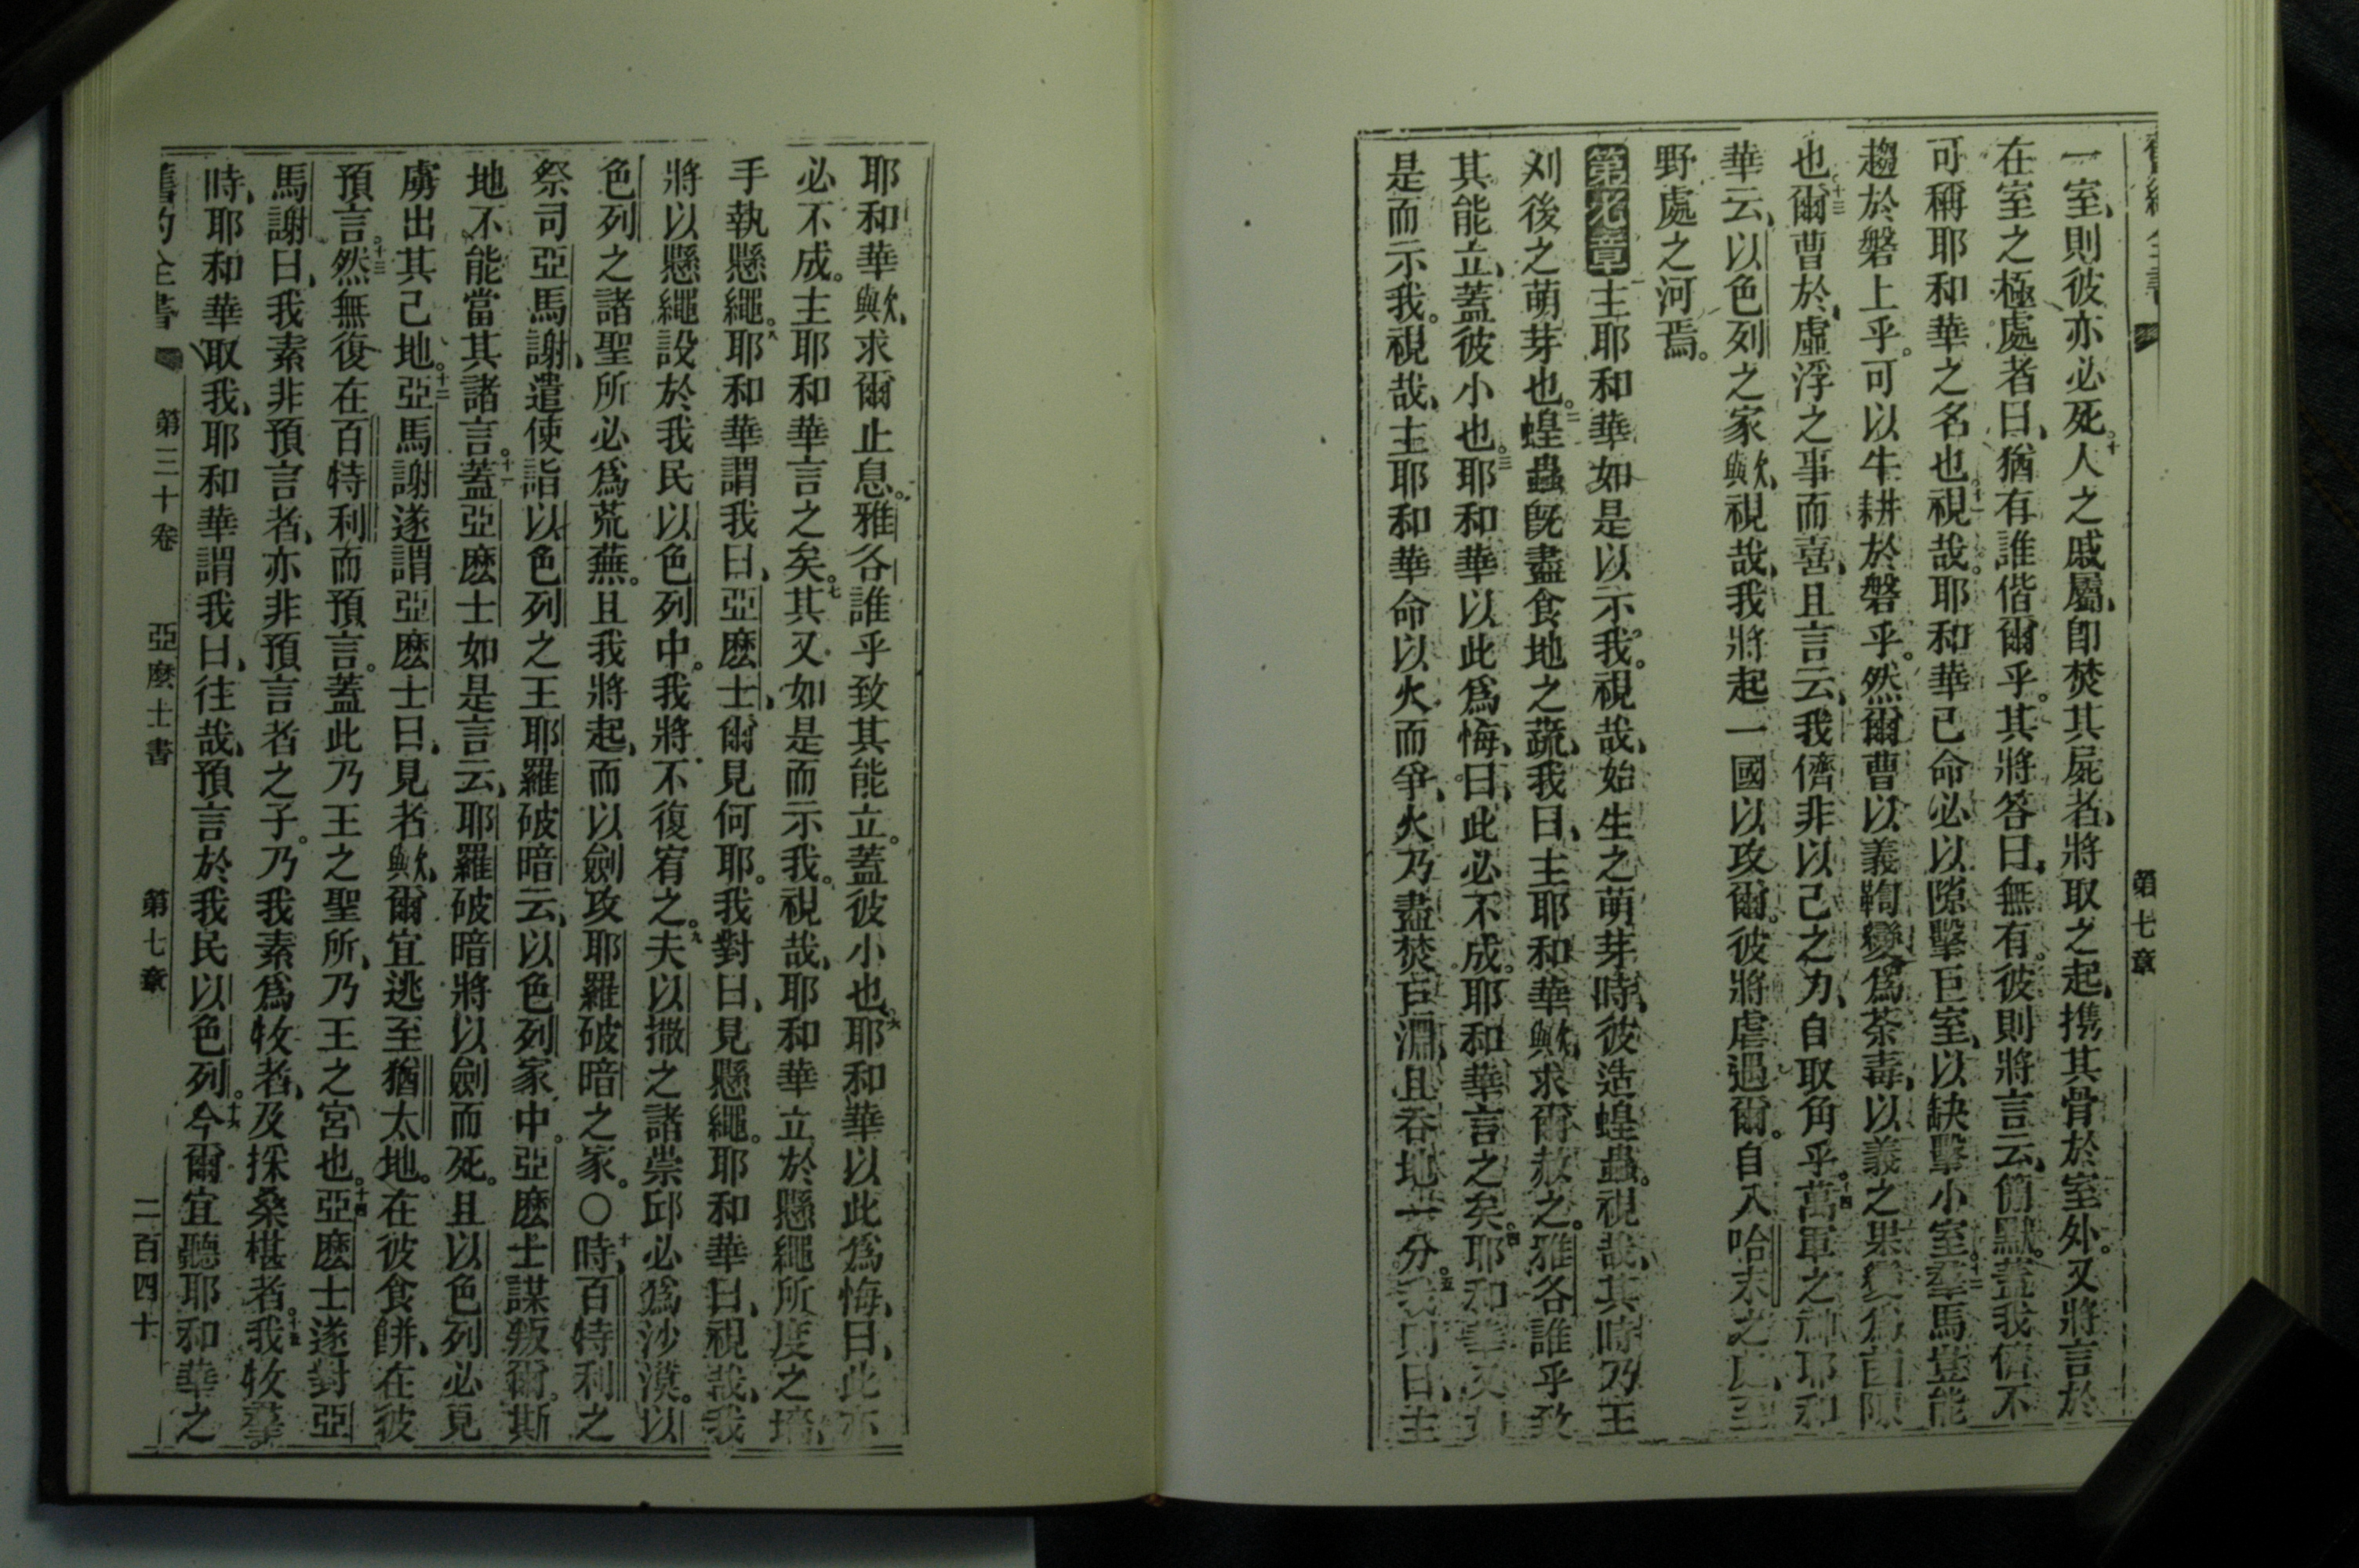 第七章
一室、則彼亦必死。十人之戚屬、卽焚其屍者、將取之起、携其骨於室外。又將言於
在室之極處者曰、猶有誰偕爾乎。其將答曰、無有。彼則將言云、箇默。蓋我儕不
可稱耶和華之名也。十一視哉。耶和華已命必以隙擊巨室、以缺擊小室。十二羣馬豈能
趨於磐上乎。可以牛耕於磐乎。然爾曹以義鞫變爲荼毒、以義之果變爲茵陳
也。十三爾曹於虛浮之事而喜、且言云、我儕非以己之力、自取角乎。十四萬軍之神耶和
華云、以色列之家歟、視哉、我將起一國以攻爾。彼將虐遇爾。自入哈末之處、至
野處之河焉。
主耶和華如是以示我。視哉、始生之萌芽時、彼造蝗蟲。視哉、其時乃王
刈後之萌芽也。二蝗蟲旣盡食地之蔬、我曰、主耶和華歟、求爾赦之。雅各誰乎致
其能立、蓋彼小也。三耶和華以此爲悔、曰、此必不成。耶和華言之矣。四耶和華又如
是而示我。視哉、主耶和華命以火而爭、火乃盡焚巨淵、且吞地一分。五我則曰、主
耶和華歟、求爾止息。雅各誰乎致其能立。蓋彼小也。六耶和華以此爲悔、曰、此亦
必不成。主耶和華言之矣。七其又如是而示我。視哉、耶和華立於懸繩所度之墻、
手執懸繩。八耶和華謂我曰、亞麽士、爾見何耶。我對曰、見懸繩。耶和華曰、視哉、我
將以懸繩設於我民以色列中。我將不復宥之。九夫以撒之諸崇邱必爲沙漠。以
色列之諸聖所必爲荒蕪。且我將起、而以劍攻耶羅破暗之家。〇十時、百特利之
祭司亞馬謝、遣使詣以色列之王耶羅破暗云、以色列家中。亞麽士謀叛爾。斯
地不能當其諸言。十一蓋亞麽士如是言云、耶羅破暗將以劍而死。且以色列必見
虜出其己地。十二亞馬謝遂謂亞麽士曰、見者歟、爾宜逃至猶太地。在彼食餠、在彼
預言。十三然無復在百特利而預言。蓋此乃王之聖所、乃王之宮也。十四亞麽士遂對亞
馬謝曰、我素非預言者、亦非預言者之子。乃我素爲牧者、及採桑椹者。十五我牧羣
時、耶和華取我、耶和華謂我曰、往哉、預言於我民以色列。十六今爾宜聽耶和華之
舊約全書 第三十卷 亞麽士書 第七章 二百四十